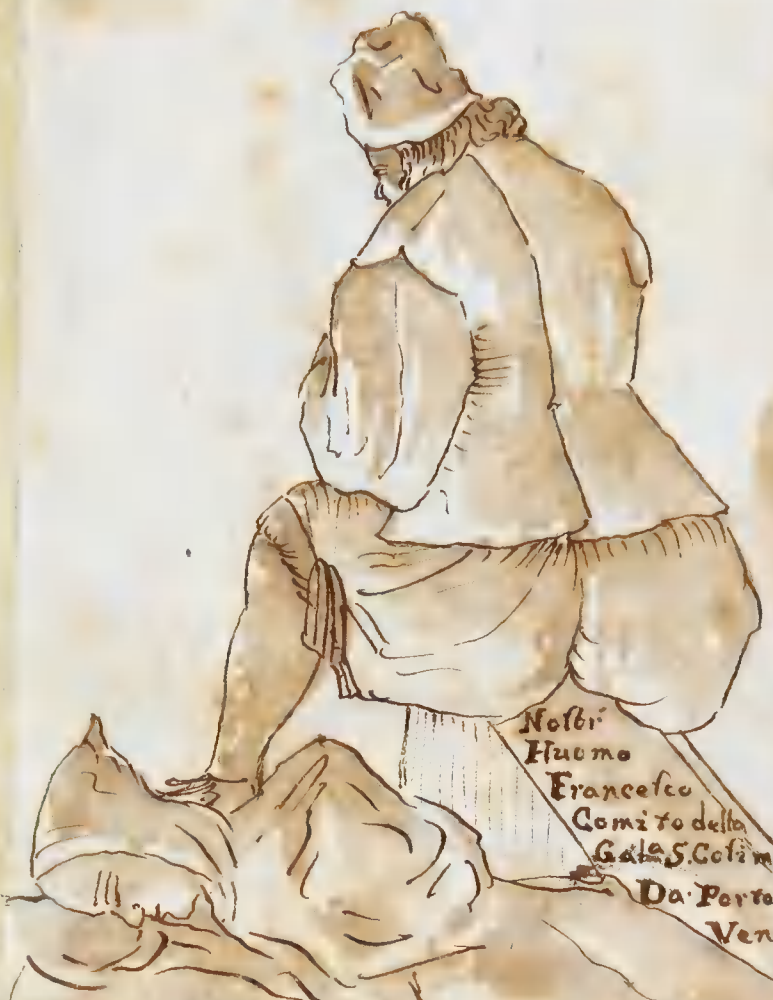 Nostr'
Huomo
Francesco
Comito della
Gal.a S. Colim
Da Porto
Ven